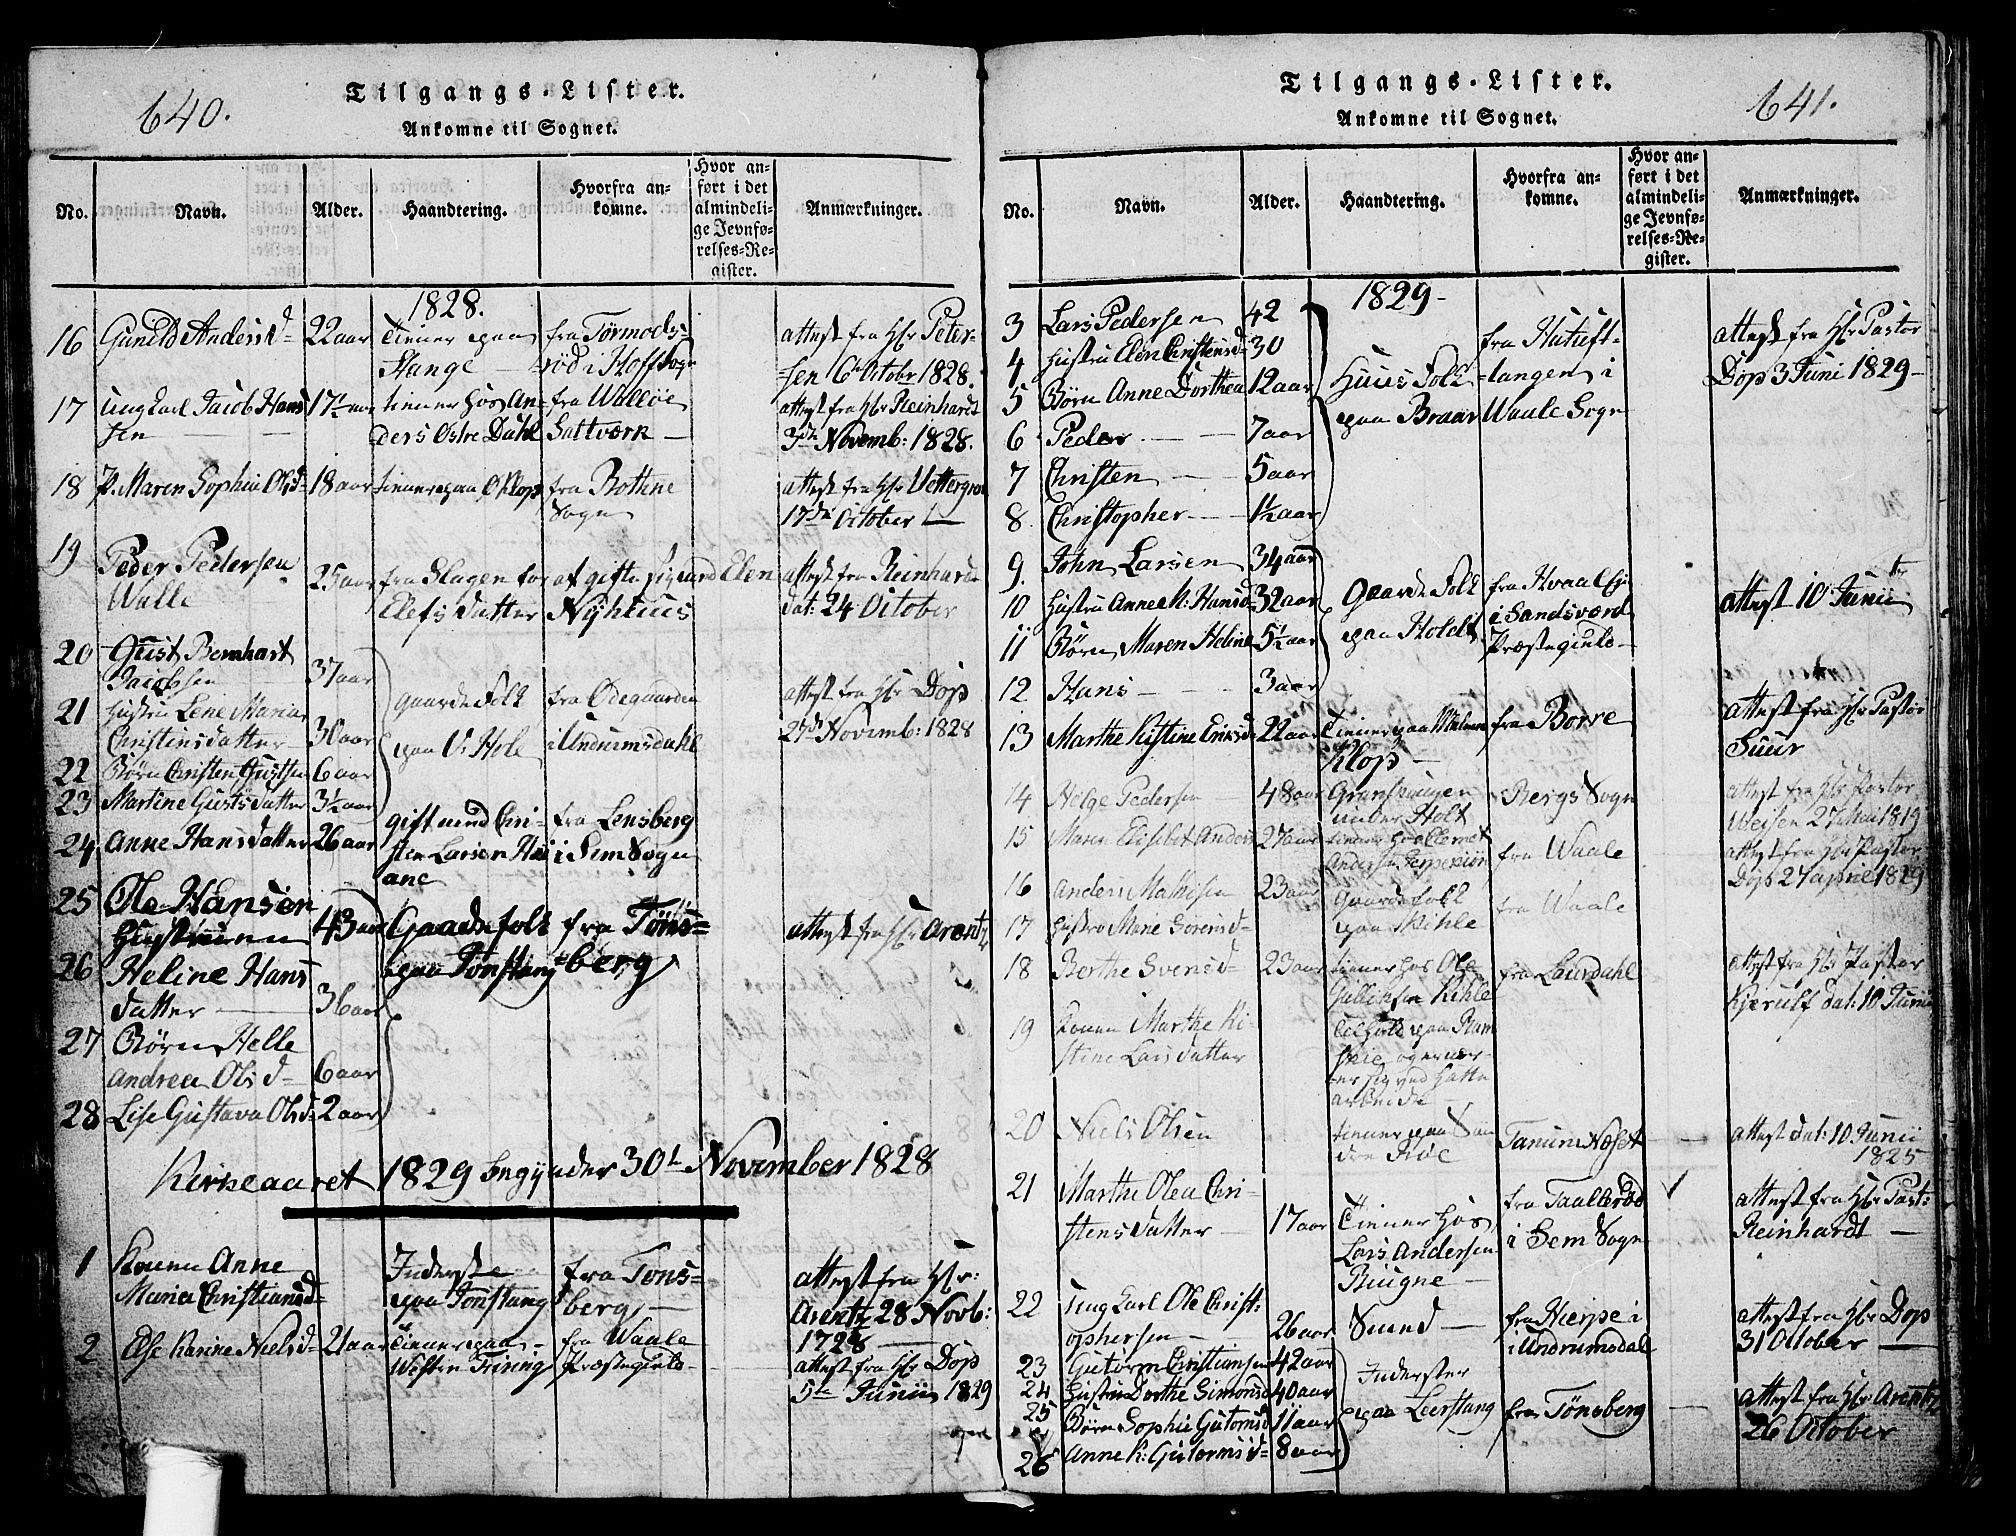 640.
Tilgangs-Lister.
Ankomne til Sognet.
No. Navn. Alder. Haandtering. Hvorfra ankomne. Hvor anført i det almindelige Jevnførelses-Register. Anmærkninger.
1828.
16 Gunild Andersd- 22 aar Tiener paa Stange fra Tørmodsrød i Hoff Sogn attest fra Hr Petersen 6 Octobr 1828.
17 Ung Karl Jacob Hansen 17 aar tiener hos Anders Østre Dahl fra Walløe Saltværk attest fra Hr Reinhardt 3die Novemb: 1828.
18 P. Maren Sophie Olsd- 18 aar tiener paa Klop fra Bothne Sogn attest fra Hr Wettergren 17de October
19 Peder Pedersen Walle 25 aar fra Slagen for at gifte sig med Elen Elefsdatter Nyhuus attest fra Reinhard dat: 24 October
20 Gust Bernhart Jacobsen 37 aar
21 Hustru Lene Maria Christinsdatter 30 aar gaardefolk paa V: Hole fra Ødegaarden i Undrumsdahl attest fra Hr Dop 27de Novemb: 1828
22 Børn Christen Gustsen 6 aar
23 Martine Gustsdatter 3½ aar
24 Anne Hansdatter 26 aar gift med Christen Larsen fra Lensberg i Sem Sogn
25 Ole Hansen 43 aar Gaardefolk paa Tonstang fra Tønsberg attest fra Hr Arentz
Hustruen
26 Heline Hansdatter 36 aar
27 Børn Helle Andrea Olsd- 6 aar
28 Lise Gustava Olsd- 2 aar
Kirkeaaret 1829 begynder 30te November 1828
1 Konen Anne Maria Christiansd- Inderste paa Tonstang fra Tønsberg attest fra Hr: Arentz 28 Novb: 1728
2 Else Karine Nielsd- 21 aar tiener paa Westen fra Waale Præstegield attest fra Hr Dop 5te Junii 1829
641.
Tilgangs-Lister.
Ankomne til Sognet.
No. Navn. Alder. Haandtering. Hvorfra ankomne. Hvor anført i det almindelige Jevnførelses-Register. Anmærkninger.
1829-
3 Lars Pedersen 42
4 Hustru Elen Christensd- 30 Huus Folk paa Braar fra Hutuftlangen i Waale Sogn attest fra Hr Pastor Dop 3 Juni 1829-
5 Børn Anne Dorthea 12 aar
6 Peder 7 aar
7 Christen 5 aar
8 Christopher 1½ aar
9. John Larsen 34 aar
10 Hustru Anne K: Hansd- 32 aar Gaarde Folk paa Holdt fra Hvaal i Sandsværd Præstegield- attest 10 Junii
11 Børn Maren Heline 5½ aar
12 Hans 3 aar
13 Marthe Kistine Eriksd- 22 aar Tiener paa Klop fra Borre attest fra Hr Pastor Suur
14 Helge Pedersen 48 aar under Holt Bergs Sogn attest fra Hr Pastor 27 Mai 1819
15 Maren Elisebet Anders 27 aar tiener hos Clemet Andersen fra Waale attest fra Hr Pastor Dop 27 april 1829
16 Anders Mathisen 23 aar Gaardefolk paa Kihle fra Waale
17 Hustru Marie Sørensd-
18 Berthe Svensd- 23 aar tiener hos Ole Gullichsen Kihle fra Laurdahl attest fra Hr Pastor Kierulf dat: 10 Junii
19 Konen Marthe Kistine Larsdatter Tilhold paa Ramheie og ernærer sig ved arbeide
20 Niels Olsen tiener paa Røe Tanum Næset attest dat: 10 Junii 1825
21 Marthe Olea Christensdatter 17 aar Tiener hos Lars Andersen Biugne fra Taallerød i Sem Sogn attest fra Hr Past: Reinhardt
22 Ung Karl Ole Christophersen 26 aar Smed fra Hierpe i Undrumsdal attest fra Hr Dop 31 October
23 Gutorm Christiansen 42 aar Inderster paa Leerstang fra Tønsberg attest fra Hr Arentz 26 October
24 Hustru Dorthe Simonsd 40 aar
25 Børn Sophie Gutormsd 11 aar
26 Anne K: Gutormsd- 8 aar